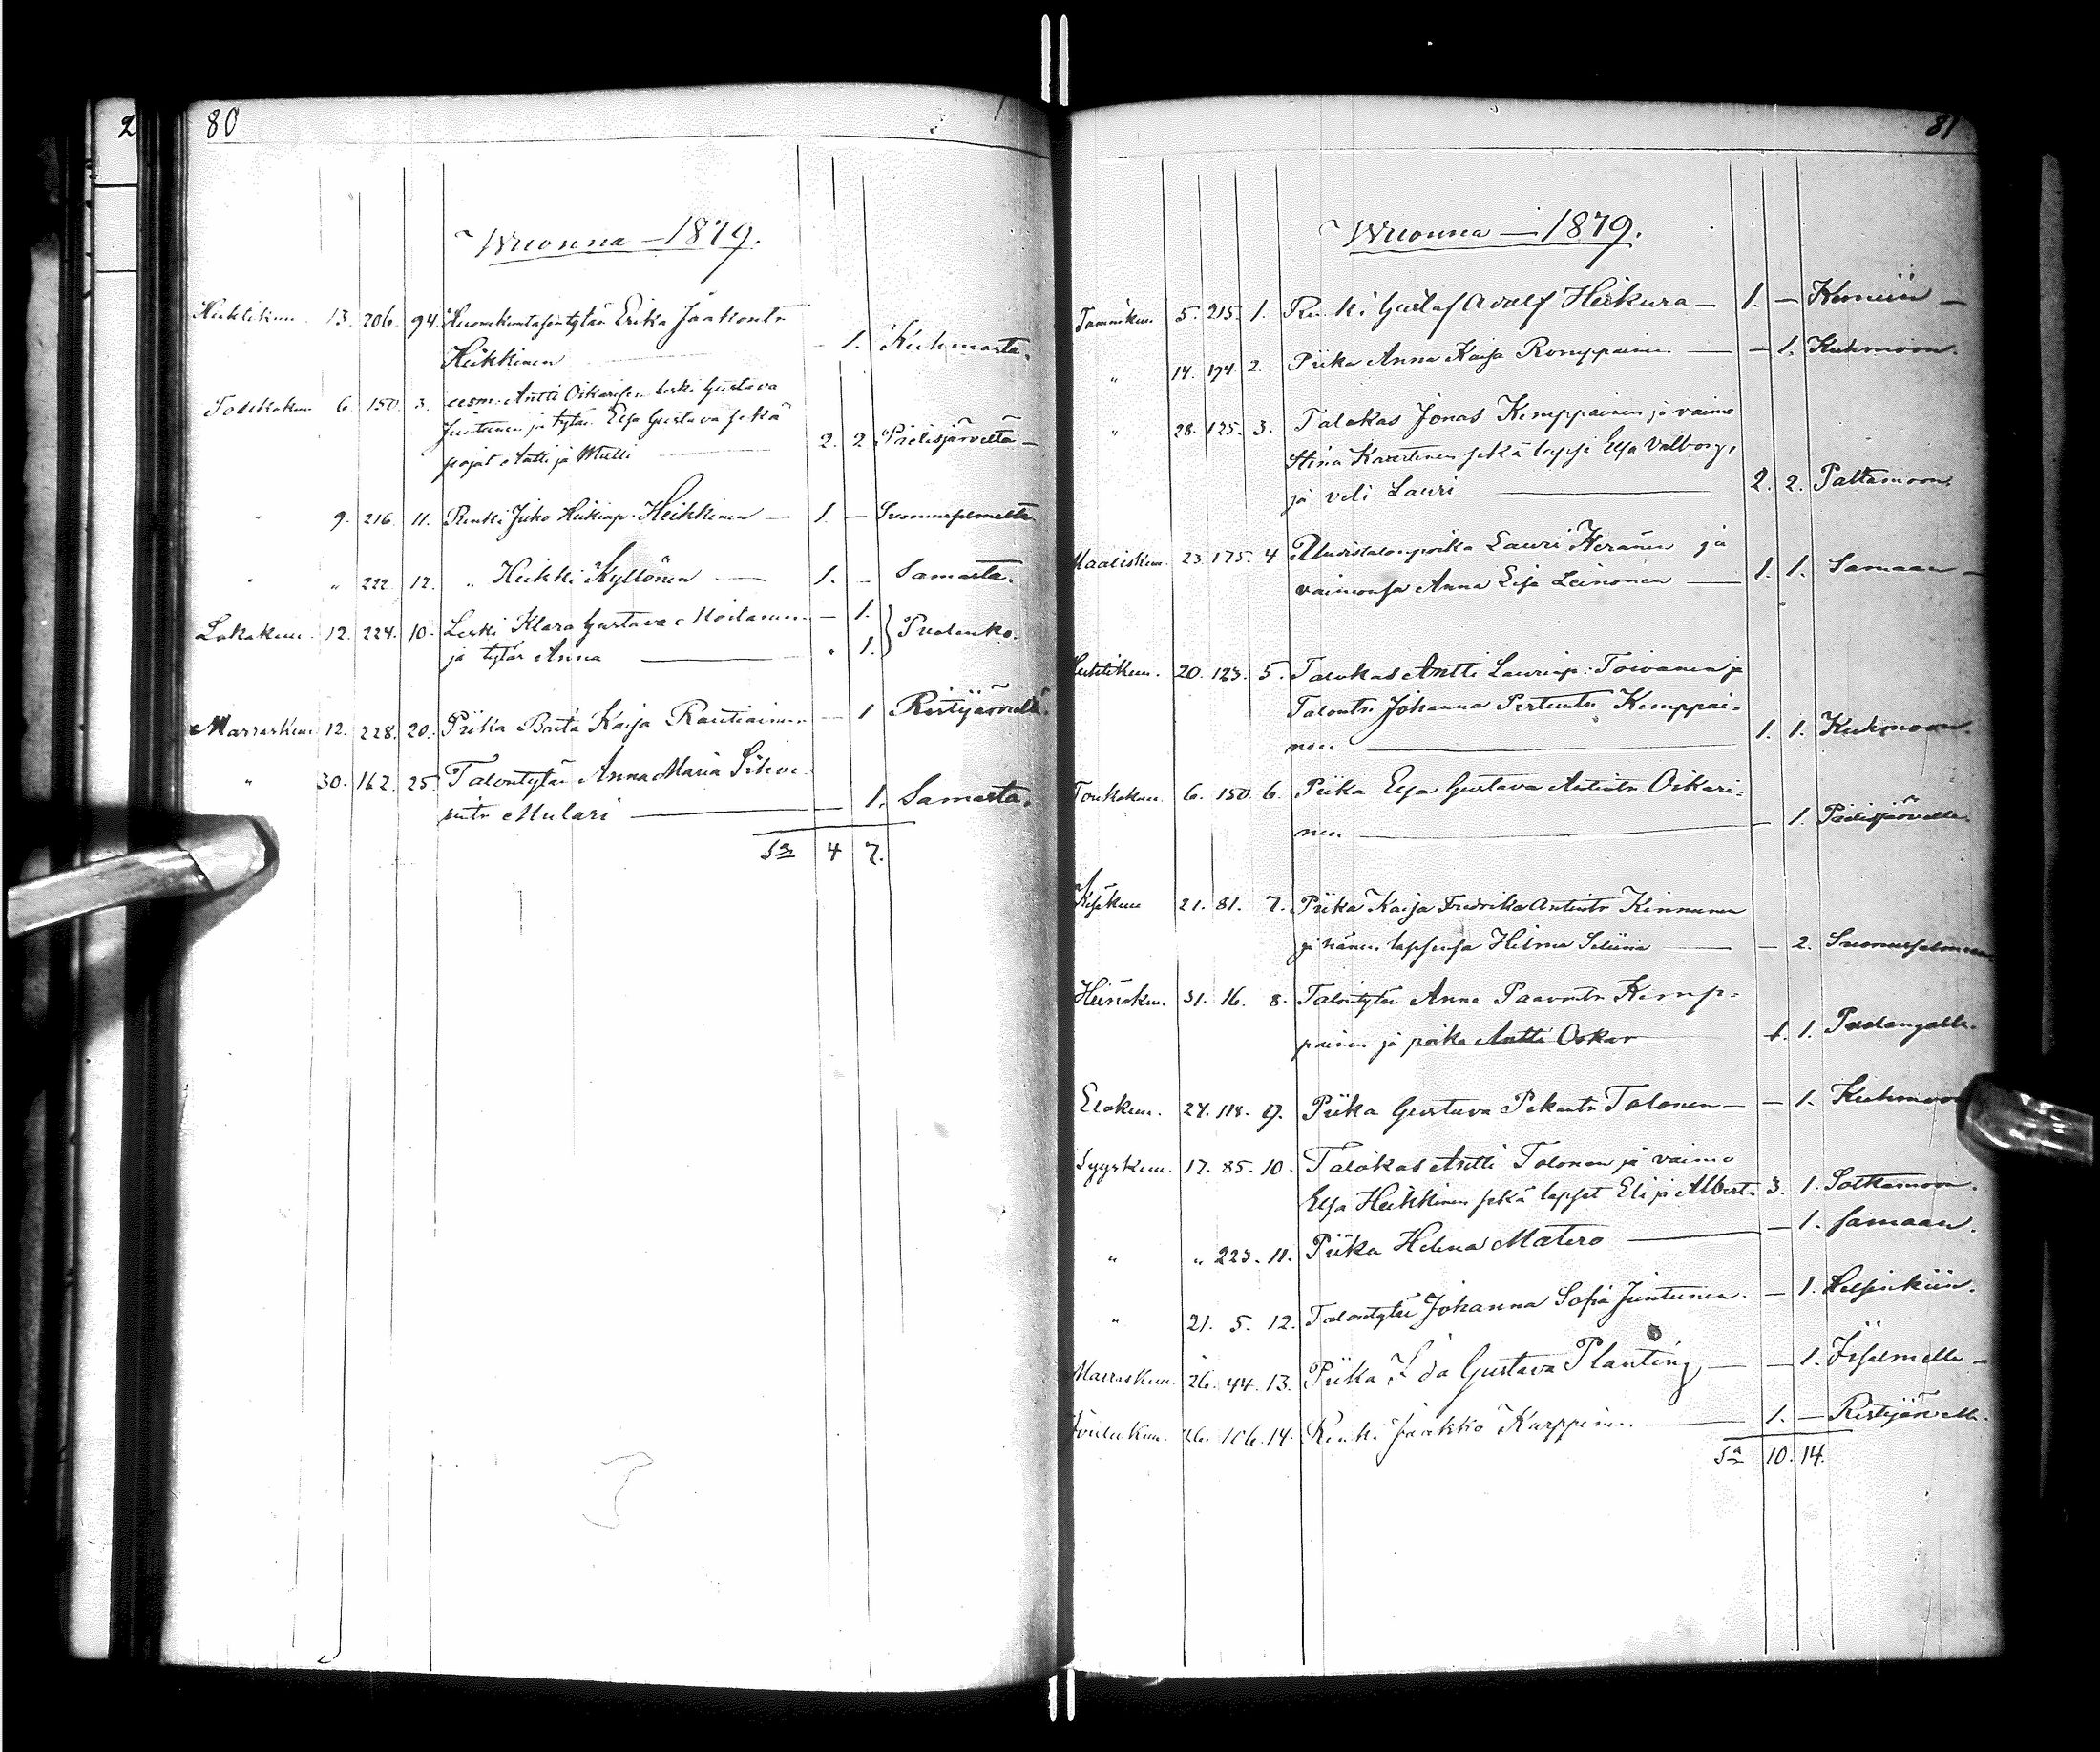 2
80
Wuonna — 1879.
Huhtikuu 13. 206. 94. Huonekuntalaisen tytär Erika Jaakontr
Heikkinen — 1. Kuhmosta.
Toukokuu 6. 150. 3. Antti Oikarisen leski Gustava
Juntunen ja tytär Elsa Gustava sekä
pojat Antti ja Matti — 2. 2 Pielisjärveltä —
" 9. 216. 11. Renki Juho Heikinp. Heikkinen — 1. — Suomussalmelta
" " 222. 12. " Heikki Kyllönen — 1. — Samasta.
Lokakuu 12. 224. 10. Leski Klara Gustava Moilanen — 1.
ja tytär Anna — 1. } Pudasko.
Marraskuu 12. 228. 20. Piika Brita Kaija Rautiainen — 1 Ristijärveltä.
" 30. 162. 25. Talontytär Anna Maria
Mulari — 1. Samasta.
Sa 4 7.
81
Wuonna — 1879.
Tammikuu 5. 215. 1. Renki Gustaf Adolf Heikura — 1. — Kemiin —
" 14. 194 2. Piika Anna Kaisa Romppainen — — 1. Kuhmoon.
" 28. 125. 3. Talokas Jonas Kemppainen ja vaimo
Stina Karstinen sekä lapsi Elsa Valborg,
ja veli Lauri — 2. 2. Paltamoon.
Maaliskuu 23. 175. 4. Lauri Keränen ja
vaimonsa Anna Leinonen — 1. 1. Samaan —
Huhtikuu. 20. 123. 5. Talokas Antti Laurinp: Toivanen ja
Talontr. Johanna Pertuntr Kemppai=
nen — 1. 1. Kuhmoon.
Toukokuu 6. 150. 6. Piika Elsa Gustava Antintr Oikari=
nen — — 1. Pielisjärvelle.
Kesäkuu 21. 81. 7. Piika Kaisa Fredrika Antintr Kinnunen
ja hänen lapsensa Hilma Seliina — — 2. Suomussalmeen
Heinäkuu. 31. 16. 8. Talontytär Anna Paavontr Kemp=
painen ja poika Antti Oskar 1. 1. Pudasjalle.
Elokuu. 24. 118. 9. Piika Gustava Pekantr Tolonen — — 1. Kuhmoo
Syyskuu. 17. 85. 10. Talokas Antti Tolonen ja vaimo
Elsa Heikkinen sekä lapset Eli ja Albert 3. 1. Sotkamoon.
" " 223. 11. Piika Helena Matero — — 1. Samaan.
" 21. 5. 12. Talontytär Johanna Sofia Juntunen. — 1. Helsinkiin.
Marraskuu. 26. 44. 13. Piika Ida Gustava Planting — — 1. Iisalmelle —
Joulukuu. 26. 106. 14. Renki Jaakko Karppinen — 1. — Ristijärvelle.
Sa 10. 14.